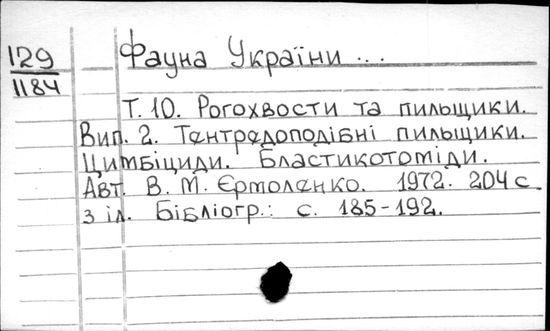 129
1184
Фауна України ...
Т. 10. Рогохвости та пильщики.
Вип. 2. Тентредоподібні пильщики.
Цимбіциди. Бластикотоміди.
Авт. В. М. Єрмоленко. 1972. 204 с.
з іл. Бібліогр.: с. 185-192.